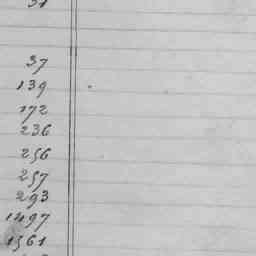 37
139
172
236
256
257
293
1497
1561